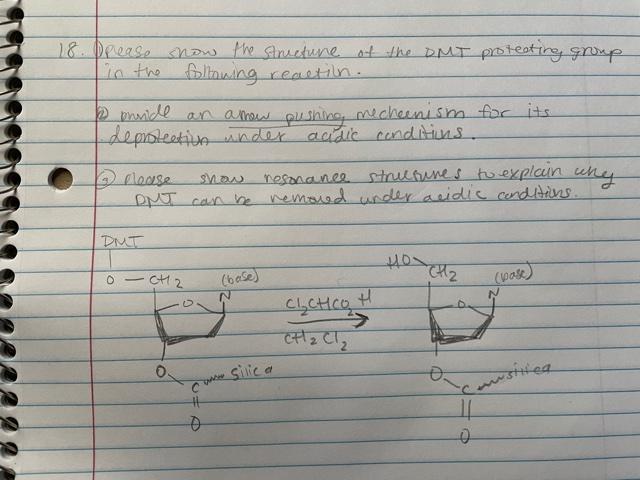 18. ① please show the structure of the DMT protecting group
in the following reaction.
② provide an arrow pushing mechanism for its
deprotection under acidic conditions.
③ please show resonance structures to explain why
DMT can be removed under acidic conditions.
DMT
O — CH2 (base)
O N
Cl2CHCO2H
CH2Cl2
O
C silica
O
HO
CH2 (base)
O N
O
C silica
O